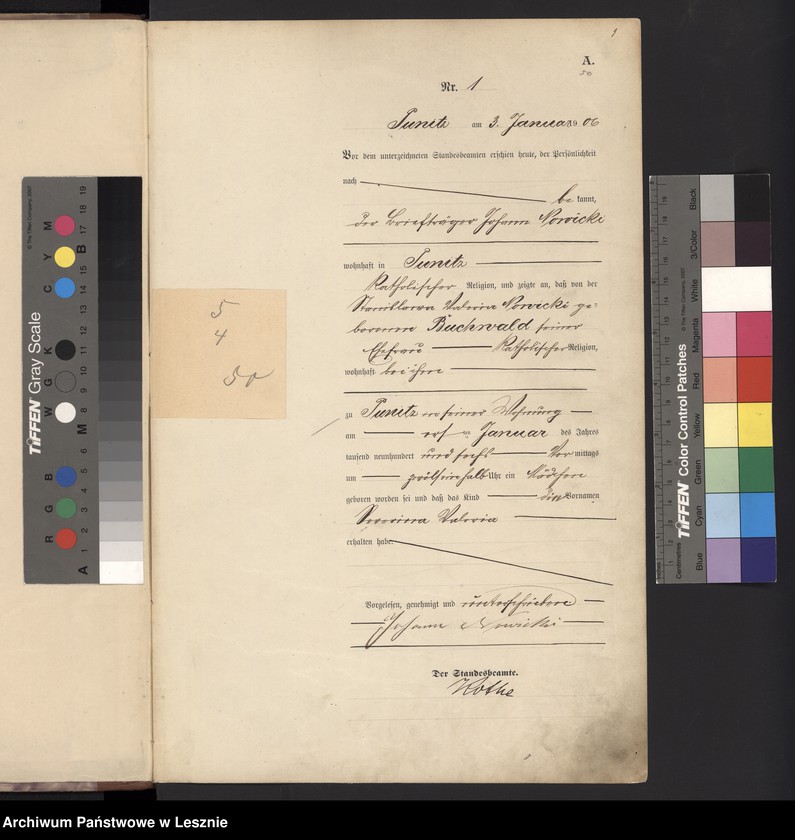 1
A.
50
Nr. 1
Punitz am 3. Januar 1906
Vor dem unterzeichneten Standesbeamten erschien heute, der Persönlichkeit
nach
be kannt,
der Briefträger Johann Nowicki
wohnhaft in Punitz
katholischer Religion, und zeigte an, daß von der
Stanislawa Valeria Nowicki ge-
borenen Buchwald seiner
Ehefrau katholischer Religion,
wohnhaft bei ihm
zu Punitz in seiner Wohnung
am ersten Januar des Jahres
tausend neunhundert und sechs Vor mittags
um zwölfeinhalb Uhr ein Mädchen
geboren worden sei und daß das Kind die Vornamen
Valeria
erhalten habe.
Vorgelesen, genehmigt und unterschrieben
Johann Nowicki
Der Standesbeamte.
Kothe
5
4
50
TIFFEN Gray Scale
© The Tiffen Company, 2007
R G B W G K C Y M
A 1 2 3 4 5 6 M 8 9 10 11 12 13 14 15 B 17 18 19
TIFFEN Color Control Patches
© The Tiffen Company, 2007
Centimetres
Blue Cyan Green Yellow Red Magenta White 3/Color Black
Archiwum Państwowe w Lesznie